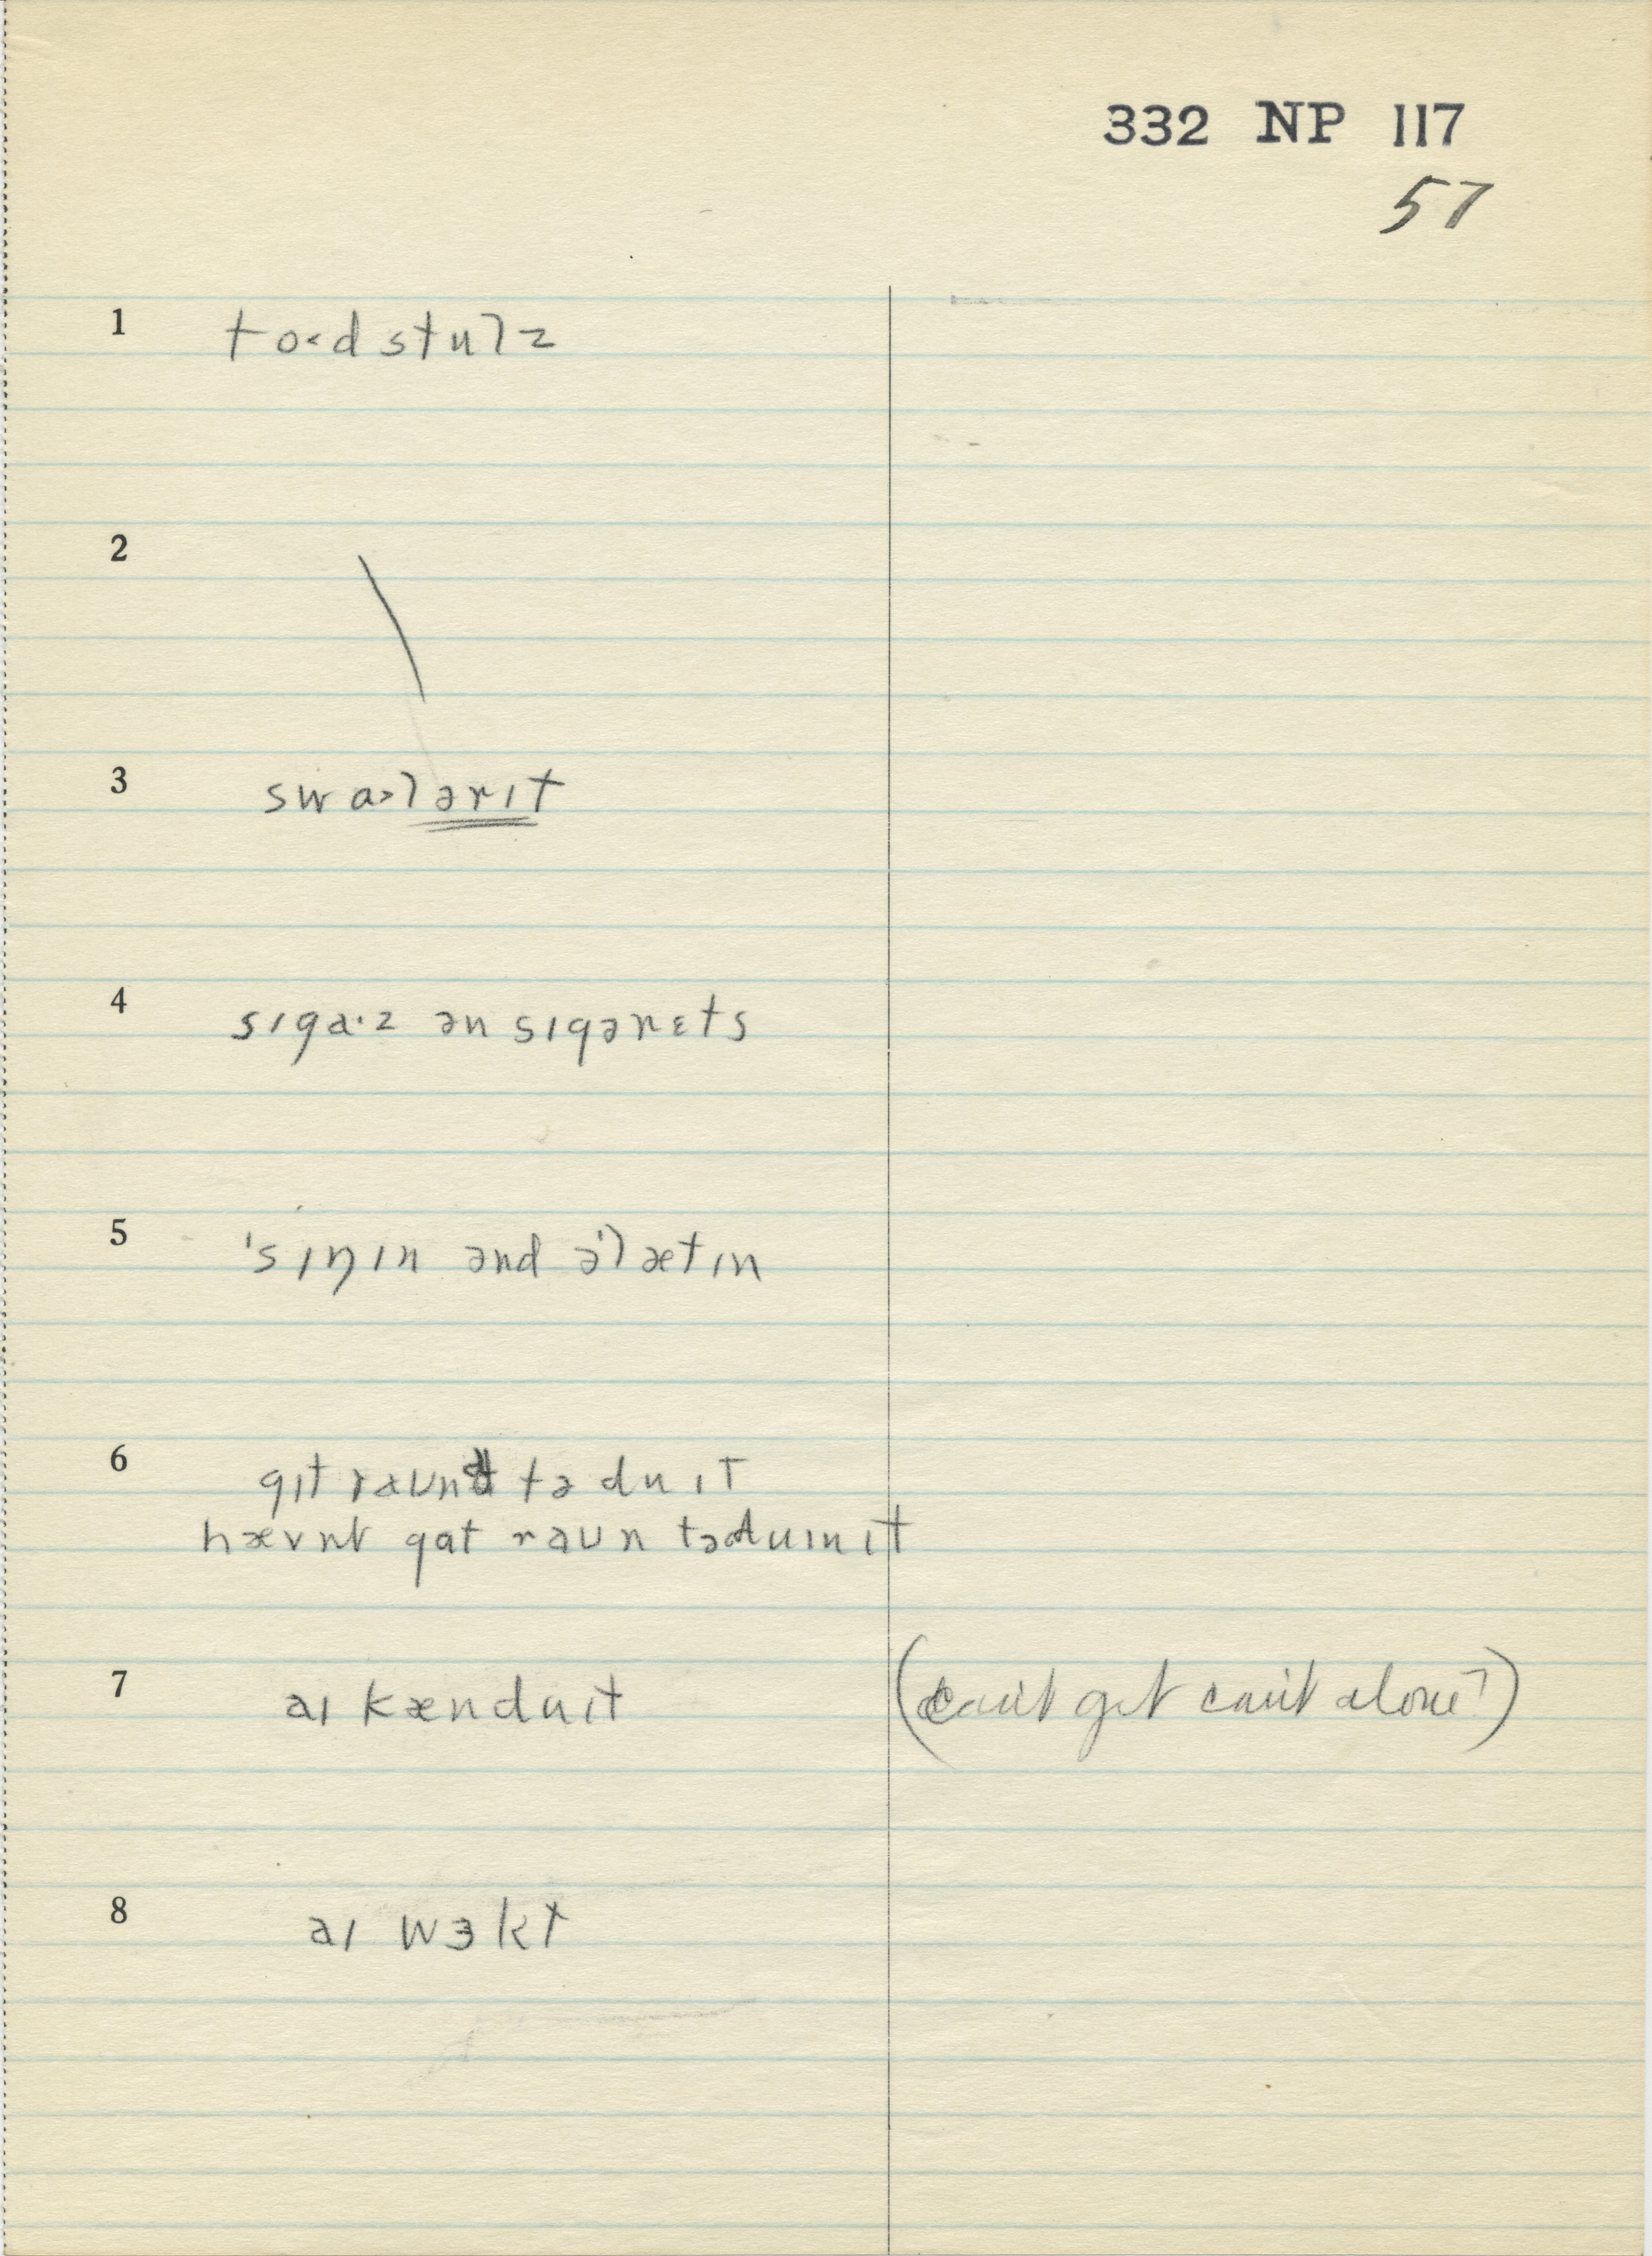 332 NP 117
57
1 to˂d stulz
2 \
3 swɑ˃lərɪt
4 sɪgɑ·z ən sɪgərɛts
5 'sɪŋɪn ənd ə'lætɪn
6 gɪt raund tə du ɪt
hævnt gɑt raʊn təduɪn ɪt
7 aɪ kænduɪt (can't get can't alone?)
8 aɪ wɜkt